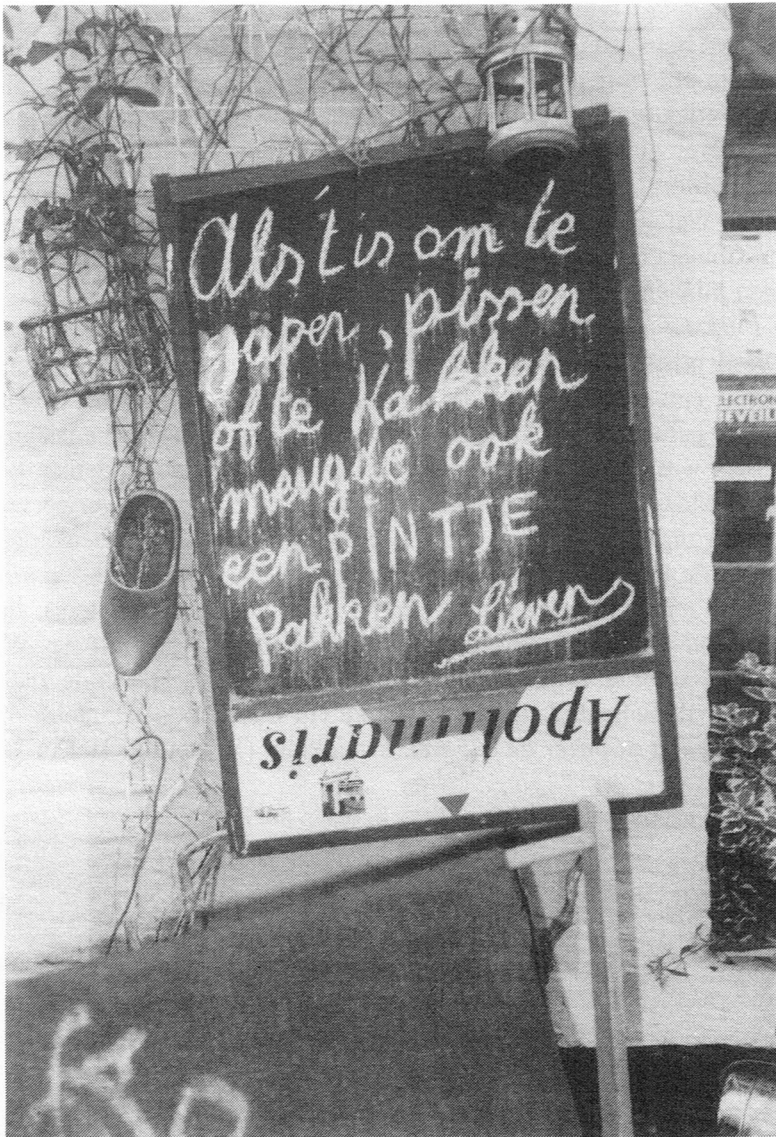 Als 't is om te
gapen, pissen
of te Kakken
meugde ook
een PINTJE
Pakken Lieven
Apollinaris
ELECTRON
REVEIL